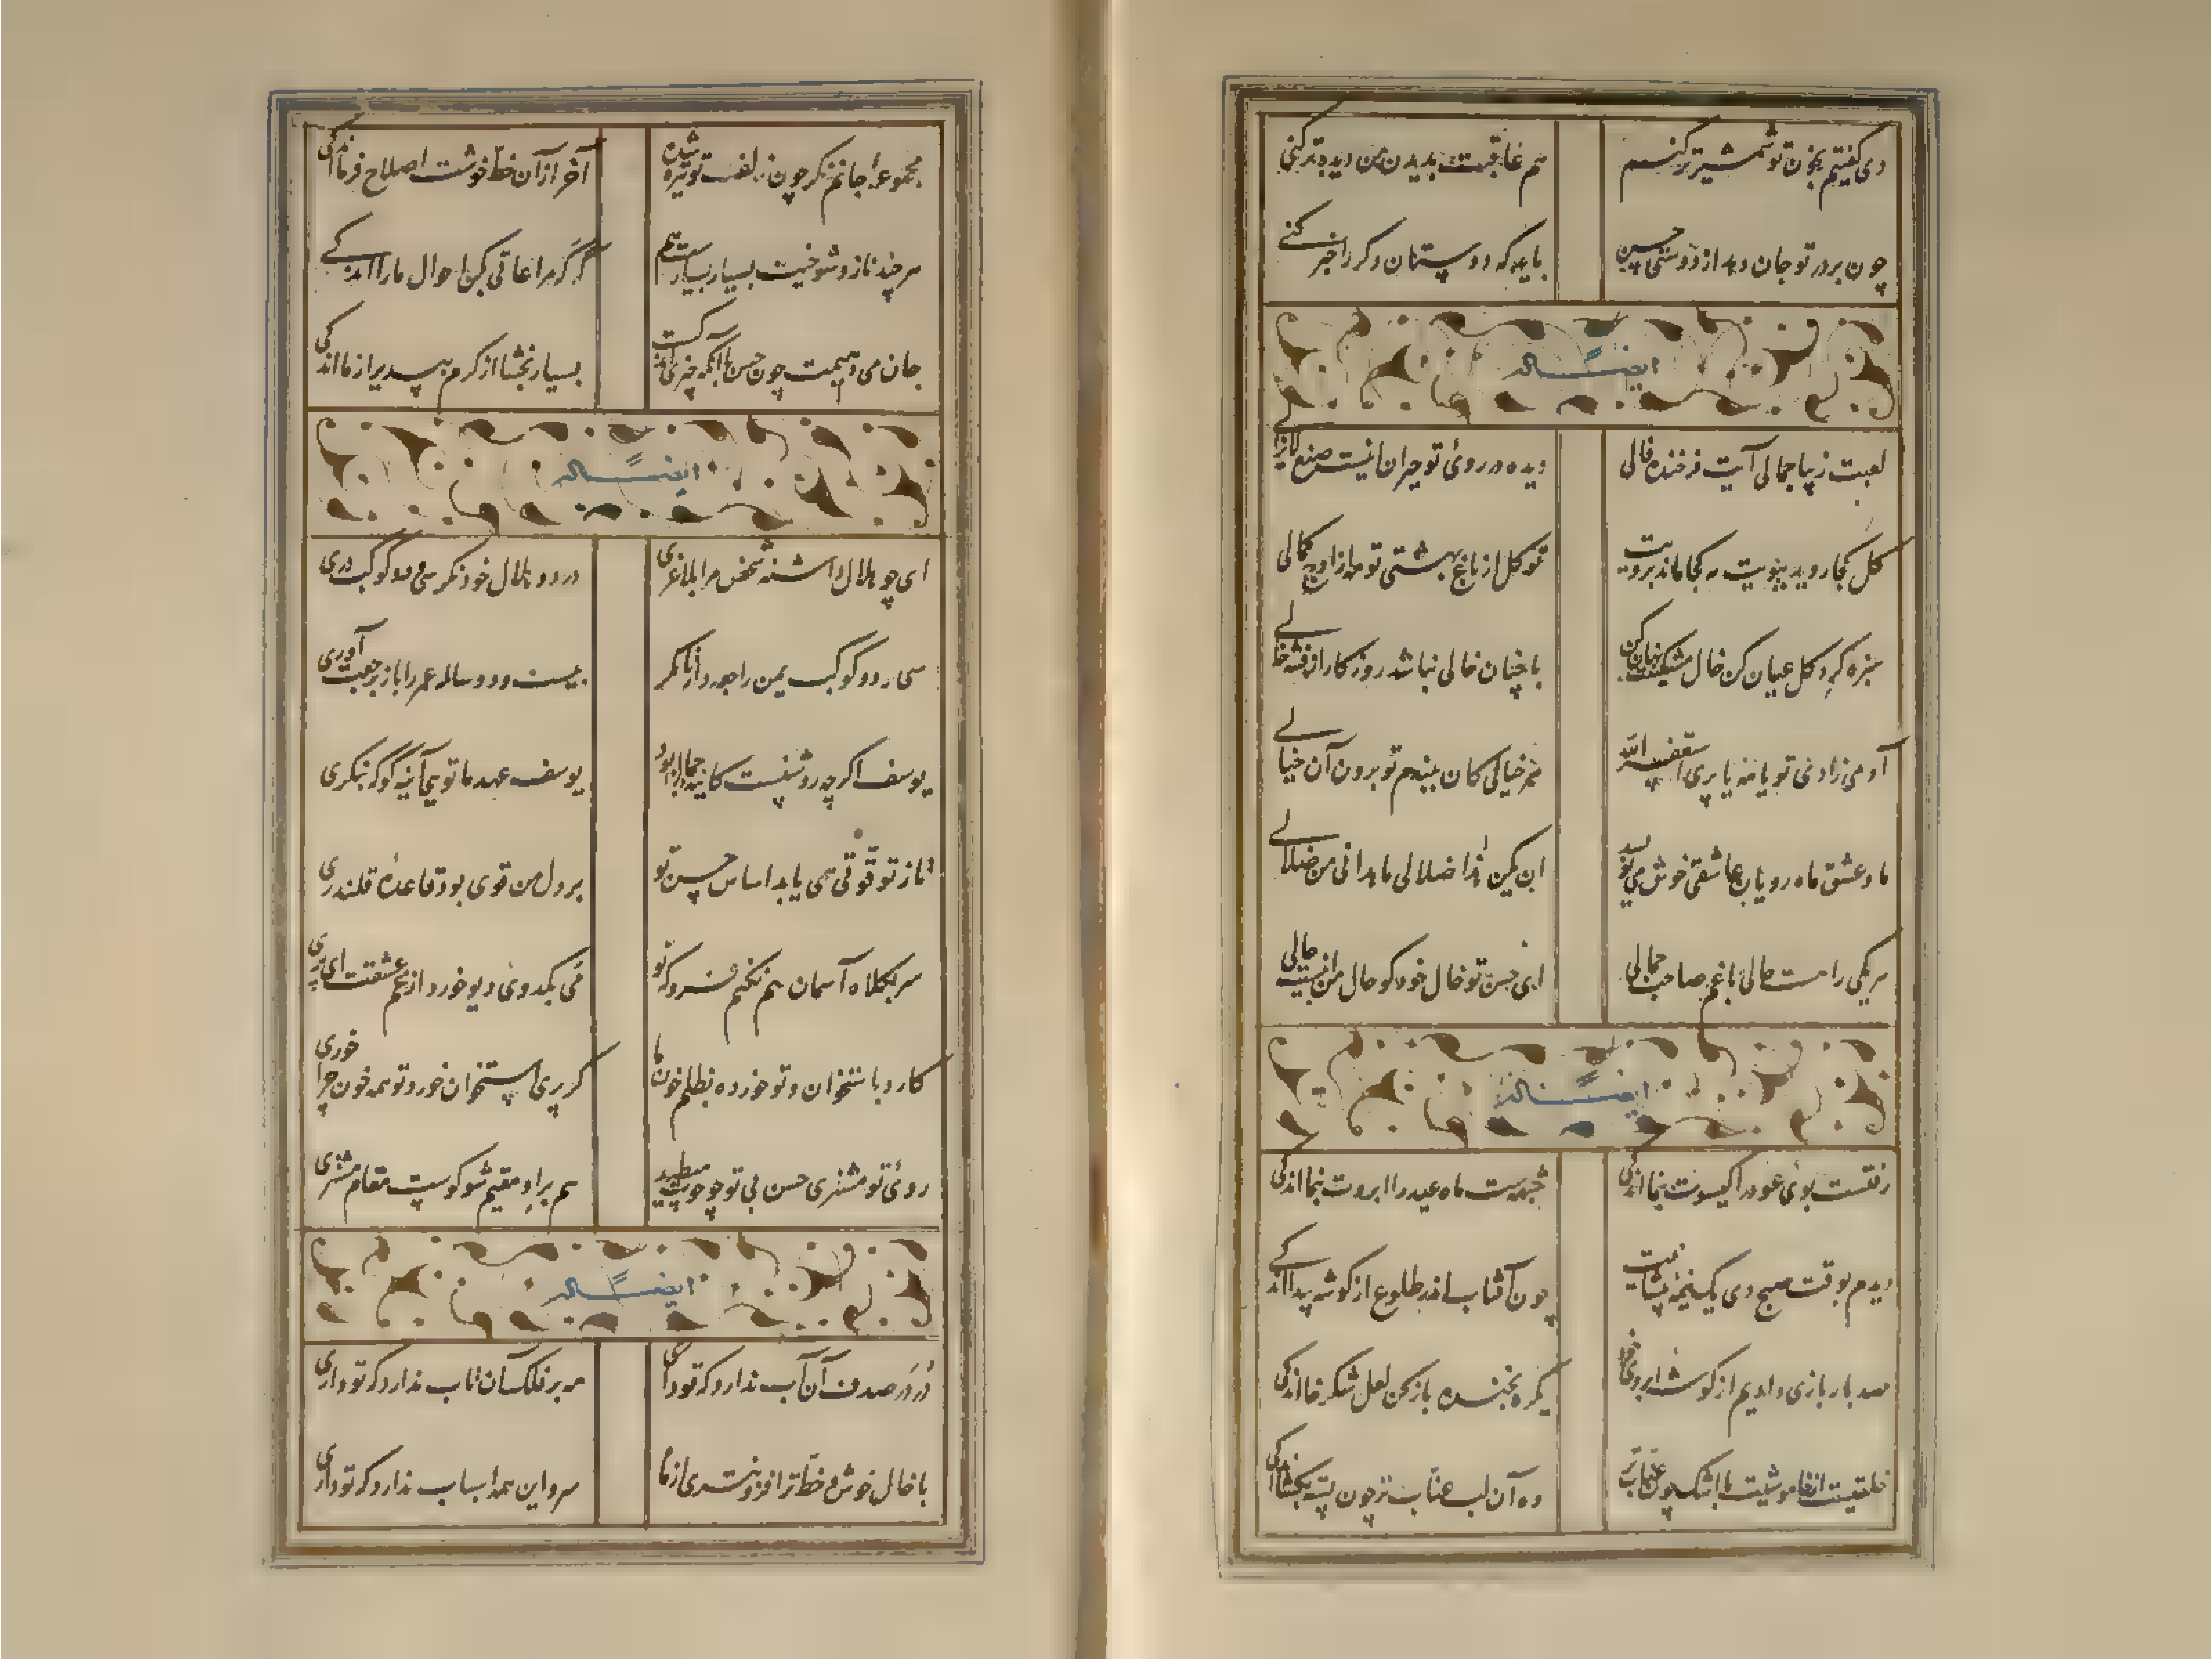 دی گفتیم بخون تو شمشیر تر کنم هم عاقبت بدیدن من دیده تر کنی
چون بر در تو جان دهد از دوستی حسین باید که دوستان دکر را خبر کنے
ایضاً له
لعبت زیبا جمالی آیت فرخنده فالی دیده در روی تو حیران اینست صنع لایزالے
کل کجا روید ببویت مه کجا ماند برویت تو کل از باغ بهشتی تو مه از اوج کمالی
سبزه کرد کل عیان کن خال مشکین نهان کن با چنان خالی نباشد روزکار از فتنه خالے
آدمی زاد نی تو یا نه یا پری استغفر الله هر خیالی کان ببندم تو برون آن خیالے
ما و عشق ماه رویان عاشقی خوش می نوید این یکن هذا ضلالی ما بدانی من ضلالے
هر یکی را هست حالی با غم صاحب جمالی ای حسن تو خال خود کو حال من اینست حالی
ایضاً له
زلفت بوی عود را کیسوت بنما اندکی شبهه‌ست ماه عید را ابروت بنما اندکی
دیدم بوقت صبح دی یک نیمه پیشانیت چون آفتاب اندر طلوع از کوشه پیدا اندکے
صد بار بازی دادیم از کوشه ابروی خود یکره بخنده باز کن لعل شکرخا اندکی
خلقیست از خاموشیت با اشک چون عناب تر وه آن لب عناب تر چون پسته بکشا اندکی
مجموعهٔ جانم نکر چون زلف تو تیره شده آخر از آن خط خوشت اصلاح فرما اندکی
هر چند ناز و شوخیت بسیار بسیارست هم کر کر مراعاتی بکن احوال ما را اندکے
جان می دهیمت چون حسن با آنکه چیزی اندکست بسیار بخشا از کرم بپذیر از ما اندکی
ایضاً له
ای چو هلال داشته شخص مرا بلاغری در دو هلال خود نکر سی و دو کوکب دری
سی و دو کوکب یمن راجه ردار نا کمر بیست و دو ساله عمر را باز بر جهت آوری
یوسف اکر چه روشنست کاینه جمال بود یوسف عهد ما تویی آینه کو که بنکری
ناز تو قوتی همی یابد اساس حسن تو بر دل من قوی بود قاعدهٔ قلندری
سر بکلاه آسمان هم نکنم فرو که تو می بکدوی دیو خورد از غم عشقت ای پری
کارد باستخوان و تو خورده بظلم خون ما کر پری استخوان خورد تو همه خون چرا خوری
روی تو مشتری حسن بی تو چو حوت میطپید هم بر او مقیم شو کوست مقام مشتری
ایضاً له
در در صدف آن آب ندارد که تو داری مه بر فلک آن تاب ندارد که تو داری
با خال خوش و خط تر افزونتری از ما سرو این همه اسباب ندارد که تو داری